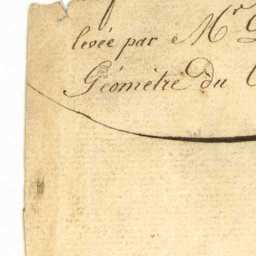 levée par Mr
Géometre du